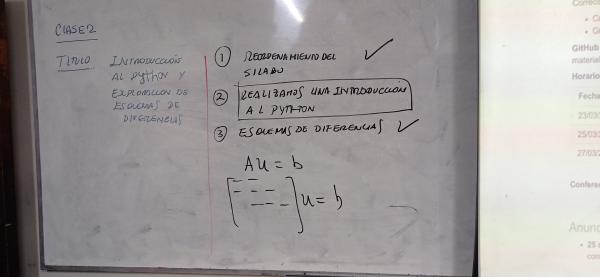 CLASE 2
TÍTULO INTRODUCCIÓN
AL PYTHON Y
EXPLORACIÓN DE
ESQUEMAS DE
DIFERENCIAS
1 REORDENAMIENTO DEL
SILABU
2 REALIZAMOS UNA INTRODUCCIÓN
AL PYTHON
3 ESQUEMAS DE DIFERENCIAS
AU = b
[ ] U = b
GitHub
material
Horario
Fecha
23/03
25/03
27/03/2